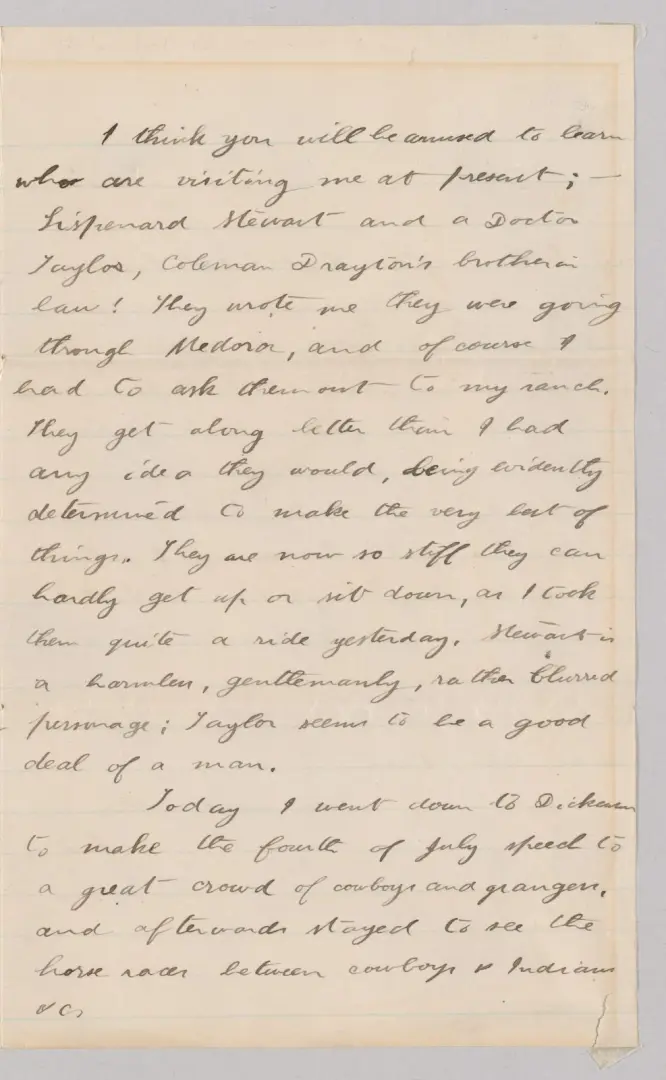 I think you will be amused to learn
who are visiting me at present; —
Lispenard Stewart and a Doctor
Taylor, Coleman Drayton's brother in
law! They wrote me they were going
through Medora, and of course I
had to ask them out to my ranch.
They get along better than I had
any idea they would, being evidently
determined to make the very best of
things. They are now so stiff they can
hardly get up or sit down, as I took
them quite a ride yesterday. Stewart is
a harmless, gentlemanly, rather blurred
personage; Taylor seems to be a good
deal of a man.
Today I went down to Dickinson
to make the fourth of July speech to
a great crowd of cowboys and grangers,
and afterwards stayed to see the
horse races between cowboys & Indians
&c